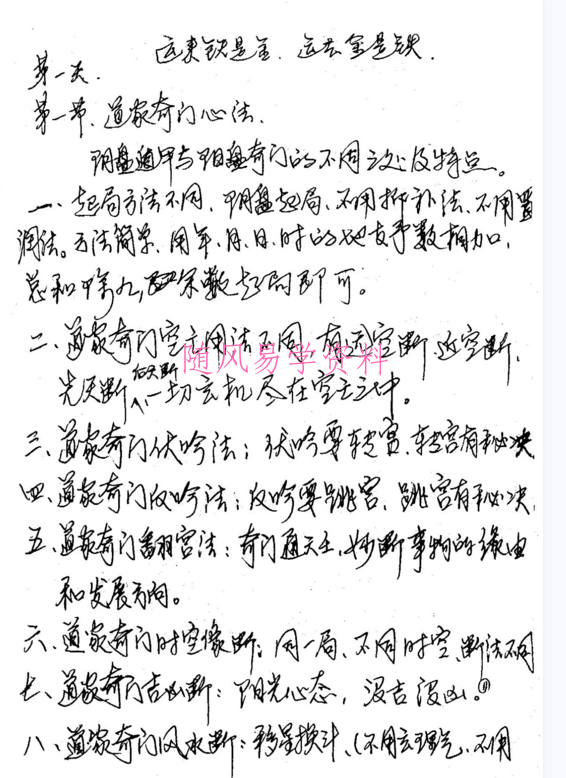 运来铁是金、运去金是铁.
第一天.
第一节、道家奇门心法.
阴盘遁甲与阳盘奇门的不同之处及特点。
一、起局方法不同，阴盘起局、不用拆补法、不用置
润法。方法简单、用年、月、日、时的地支序数相加，
总和除九，余数起局即可。
二、道家奇门空亡用法不同，有远空断 近空断，
先天断 后天断 一切玄机尽在空亡之中。
随风易学资料
三、道家奇门伏吟法；伏吟要转宫、转宫有秘决
四、道家奇门反吟法；反吟要跳宫、跳宫有秘决
五、道家奇门翻宫法：奇门通天主，妙断事物的缘由
和发展方向。
六、道家奇门时空像断：同一局、不同时空、断法不同
七、道家奇门吉凶断：阳光心态，没吉没凶。
八、道家奇门风水断：移星换斗、(不用玄理气、不用